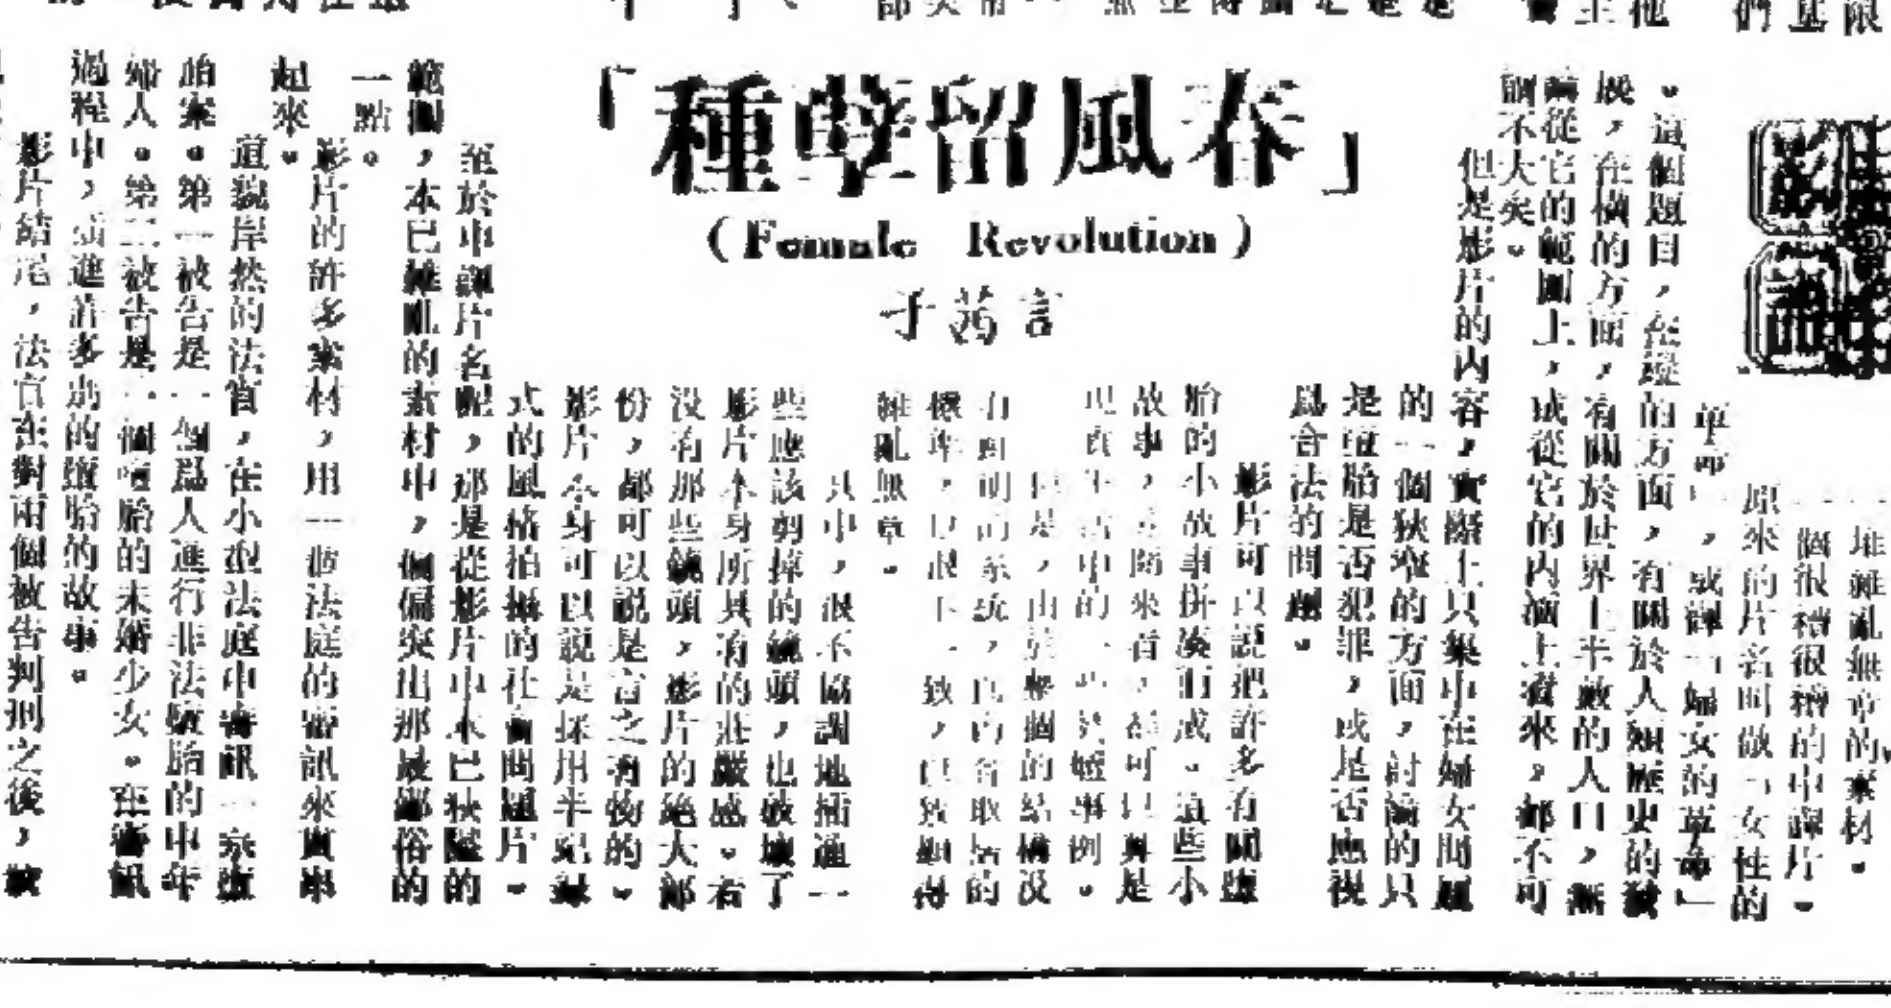 一堆雜亂無章的素材。
一個很糟很糟的中譯片。
原來的片名叫做「女性的
革命」，或譯「婦女的革命」
。這個題目，在縱的方面，有關於人類歷史的發
展，在橫的方面，有關於世界上半數的人口，無
論從它的範圍上，或從它的內涵上看來，都不可
謂不大矣。
「春風留孽種」
(Female Revolution)
于茜言
但是影片的內容，實際上只集中在婦女問題
的一個狹窄的方面，討論的只
是墮胎是否犯罪，或是否應視
爲合法的問題。
影片可以說把許多有關墮
胎的小故事拼湊而成。這些小
故事，分開來看，都可以算是
現實生活中的一些事例。
但是，由於整個的結構沒
有鮮明的系統，且內容取捨的
標準，也很不一致，以致顯得
雜亂無章。
其中，很不協調地插進一
些應該剪掉的鏡頭，也破壞了
影片本身所具有的莊嚴感。若
沒有那些鏡頭，影片的絕大部
份，都可以說是言之有物的。
影片本身可以說是採用半紀錄
式的風格拍攝的社會問題片。
至於中譯片名呢，那是從影片中本已狹隘的
範圍，本已雜亂的素材中，偏偏突出那最鄙俗的
一點。
影片的許多素材，用一個法庭的審訊來貫串
起來。
道貌岸然的法官，在小型法庭中審訊一宗墮
胎案。第一被告是一個爲人進行非法墮胎的中年
婦人。第二被告是一個墮胎的未婚少女。在審訊
過程中，插進許多別的墮胎的故事。
影片結尾，法官在對兩個被告判刑之後，